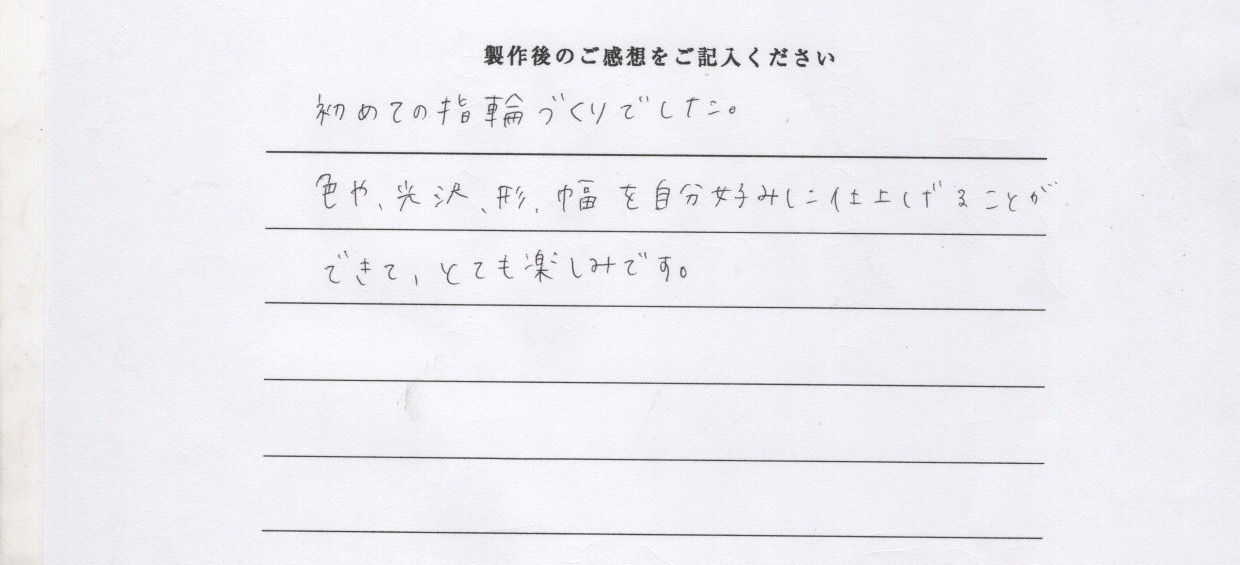 製作後のご感想をご記入ください
初めての指輪づくりでした。
色や、光沢、形、幅を自分好みに仕上げることが
できて、とても楽しみです。